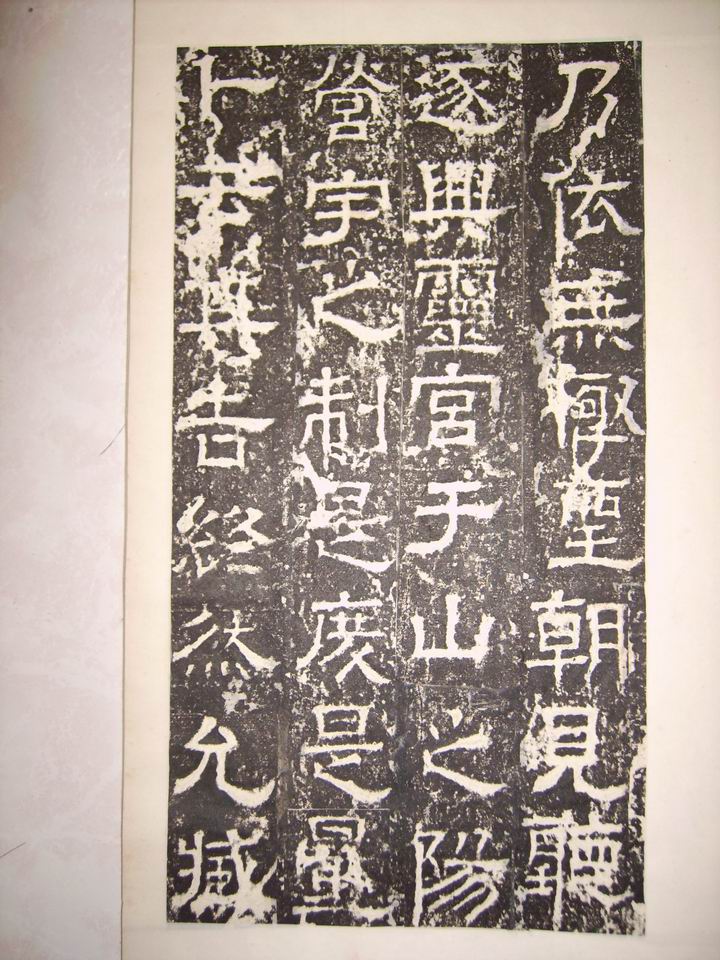 乃依無極聖朝見聽
遂興靈宮于山之陽
營宇之制是度是量
卜云其吉終然允臧